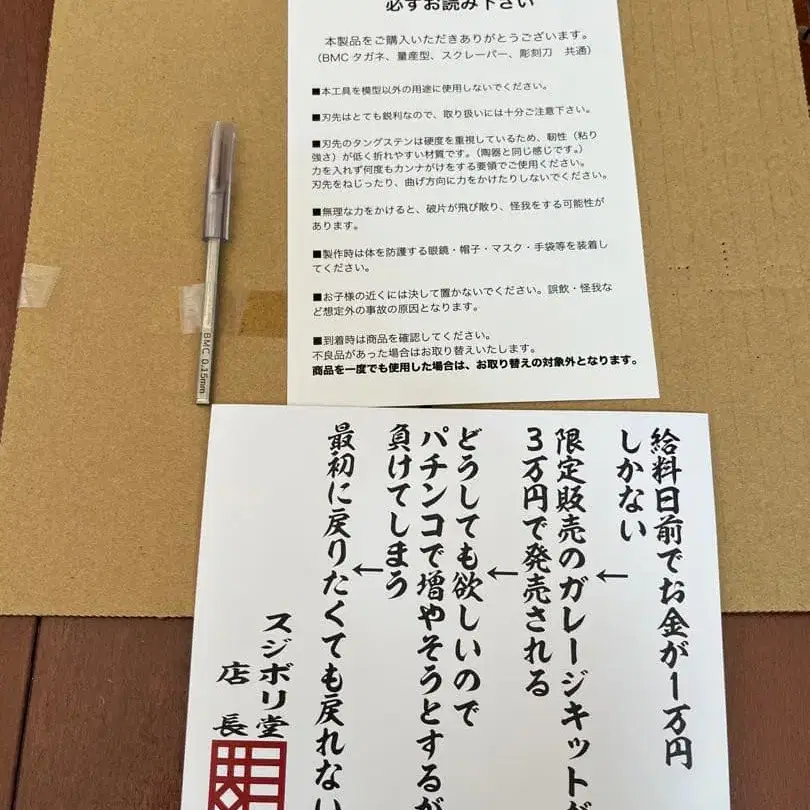 必ずお読み下さい
本製品をご購入いただきありがとうございます。
（BMCタガネ、量産型、スクレーパー、彫刻刀　共通）
■本工具を模型以外の用途に使用しないでください。
■刃先はとても鋭利なので、取り扱いには十分ご注意下さい。
■刃先のタングステンは硬度を重視しているため、靭性（粘り
強さ）が低く折れやすい材質です。（陶器と同じ感じです。）
力を入れず何度もカンナがけをする要領でご使用ください。
刃先をねじったり、曲げ方向に力をかけたりしないでください。
■無理な力をかけると、破片が飛び散り、怪我をする可能性が
あります。
■製作時は体を防護する眼鏡・帽子・マスク・手袋等を装着し
てください。
■お子様の近くには決して置かないでください。誤飲・怪我な
ど想定外の事故の原因となります。
■到着時は商品を確認してください。
不良品があった場合はお取り替えいたします。
商品を一度でも使用した場合は、お取り替えの対象外となります。
BMC 0.15mm
給料日前でお金が1万円
しかない
←
限定販売のガレージキットが
3万円で発売される
←
どうしても欲しいので
パチンコで増やそうとするが
負けてしまう
←
最初に戻りたくても戻れない
スジボリ堂
店長